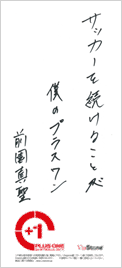 サッカーを続けることが
僕のプラスワン
前園真聖
+1
PLUS ONE